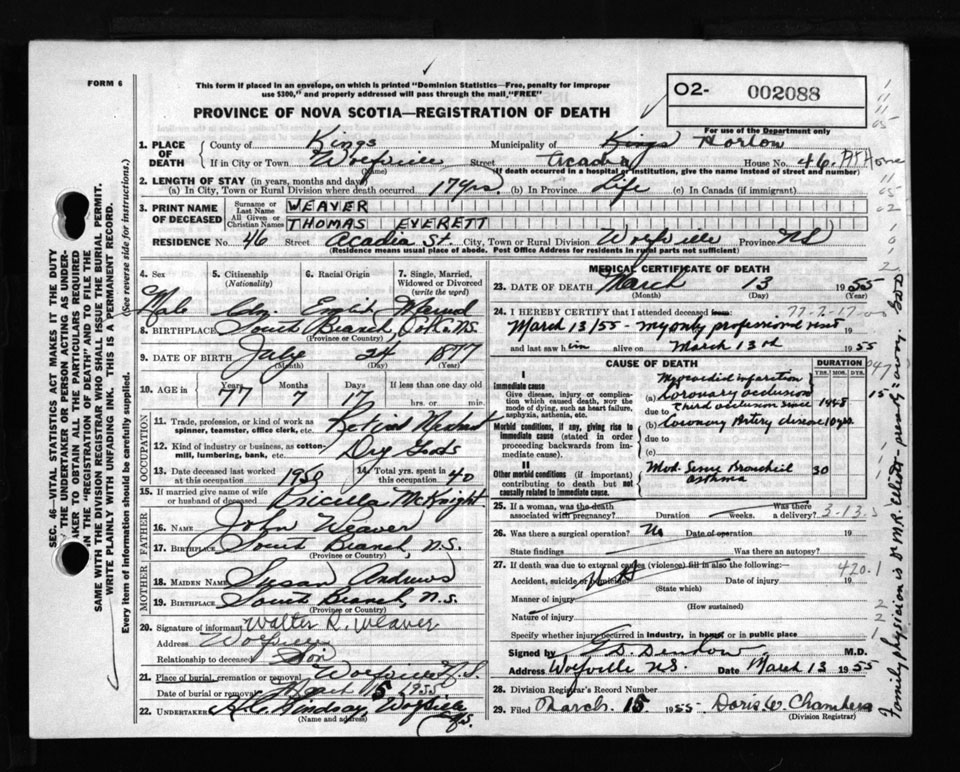 FORM 6
This form if placed in an envelope, on which is printed "Dominion Statistics—Free, penalty for improper
use $300," and properly addressed will pass through the mail, "FREE"
02- 002088
For use of the Department only
PROVINCE OF NOVA SCOTIA—REGISTRATION OF DEATH
1. PLACE OF DEATH
County of Kings Municipality of Kings Horton
If in City or Town Wolfville Street Acadia House No. 46. At Home
(Name) (If death occurred in a hospital or institution, give the name instead of street and number)
2. LENGTH OF STAY (in years, months and days)
(a) In City, Town or Rural Division where death occurred 17 yrs (b) In Province Life (c) In Canada (if immigrant)
3. PRINT NAME OF DECEASED
Surname or Last Name WEAVER
All Given or Christian Names THOMAS EVERETT
RESIDENCE No. 46 Street Acadia St. City, Town or Rural Division Wolfville Province NS
(Residence means usual place of abode. Post Office Address for residents in rural parts not sufficient)
4. Sex 5. Citizenship (Nationality) 6. Racial Origin 7. Single, Married, Widowed or Divorced (write the word)
Male Cdn. English Married
8. BIRTHPLACE South Branch, N.S.
(Province or Country)
9. DATE OF BIRTH July 24 1877
(Month) (Day) (Year)
10. AGE in Years Months Days If less than one day old
77 7 17 hrs. or min.
OCCUPATION
11. Trade, profession, or kind of work as spinner, teamster, office clerk, etc. Retired
12. Kind of industry or business, as cotton-mill, lumbering, bank, etc. Dry Goods
13. Date deceased last worked at this occupation 1950 14. Total yrs. spent in this occupation 40
15. If married give name of wife or husband of deceased Pricella McKnight
FATHER
16. Name John Weaver
17. Birthplace South Branch, N.S.
(Province or Country)
MOTHER
18. MAIDEN NAME Susan Andrews
19. BIRTHPLACE South Branch, N.S.
(Province or Country)
20. Signature of informant Walter R. Weaver
Address Wolfville
Relationship to deceased Son
21. Place of burial, cremation or removal Wolfville N.S.
Date of burial or removal March 15 1955
22. UNDERTAKER Lindsay, Wolfville N.S.
(Name and address)
MEDICAL CERTIFICATE OF DEATH
23. DATE OF DEATH March 13 1955
(Month) (Day) (Year)
24. I HEREBY CERTIFY that I attended deceased from: 77-7-17
March 13/55 - my only professional visit 19
and last saw him alive on March 13th 1955
CAUSE OF DEATH DURATION
YRS. MOS. DYS.
I
Immediate cause
Give disease, injury or complication which caused death, not the mode of dying, such as heart failure, asphyxia, asthenia, etc.
Myocardial infarction
(a) Coronary occlusion 15
due to third occlusion since 1948
Morbid conditions, if any, giving rise to immediate cause (stated in order proceeding backwards from immediate cause).
(b) Coronary Artery disease 10 yrs.
due to
(c)
II
Other morbid conditions (if important) contributing to death but not causally related to immediate cause.
Mod. Severe Bronchial asthma 30
25. If a woman, was the death associated with pregnancy? Duration weeks. Was there a delivery? 3-13.
26. Was there a surgical operation? No Date of operation 19
State findings Was there an autopsy?
27. If death was due to external causes (violence) fill in also the following:— 420.1
Accident, suicide or homicide? Date of injury 19
(State which)
Manner of injury
(How sustained)
Nature of injury
Specify whether injury occurred in industry, in home, or in public place
Signed by G.D. Denton M.D.
Address Wolfville N.S. Date March 13 1955
28. Division Registrar's Record Number
29. Filed March 15 1955 Doris W. Chambers
(Division Registrar)
Family physician is Dr M.R. Elliott - presently away. GDD
SEC. 46—VITAL STATISTICS ACT MAKES IT THE DUTY
OF THE UNDERTAKER OR PERSON ACTING AS UNDERTAKER TO OBTAIN ALL THE PARTICULARS REQUIRED
IN THE "REGISTRATION OF DEATH" AND TO FILE THE
SAME WITH THE DIVISION REGISTRAR WHO SHALL ISSUE THE BURIAL PERMIT.
WRITE PLAINLY WITH UNFADING INK. THIS IS A PERMANENT RECORD.
Every item of information should be carefully supplied. (See reverse side for instructions.)